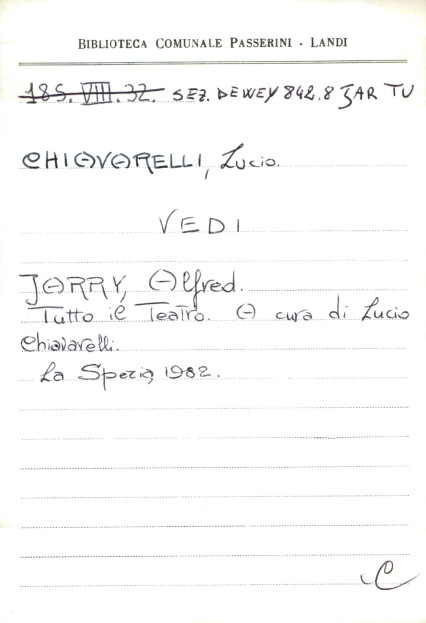 BIBLIOTECA COMUNALE PASSERINI - LANDI
185. VIII. 32. SEZ. DEWEY 842.8 JAR TU
CHIAVARELLI, Lucio.
VEDI
JARRY, Alfred.
Tutto il Teatro. A cura di Lucio
Chiavarelli.
La Spezia, 1982.
C